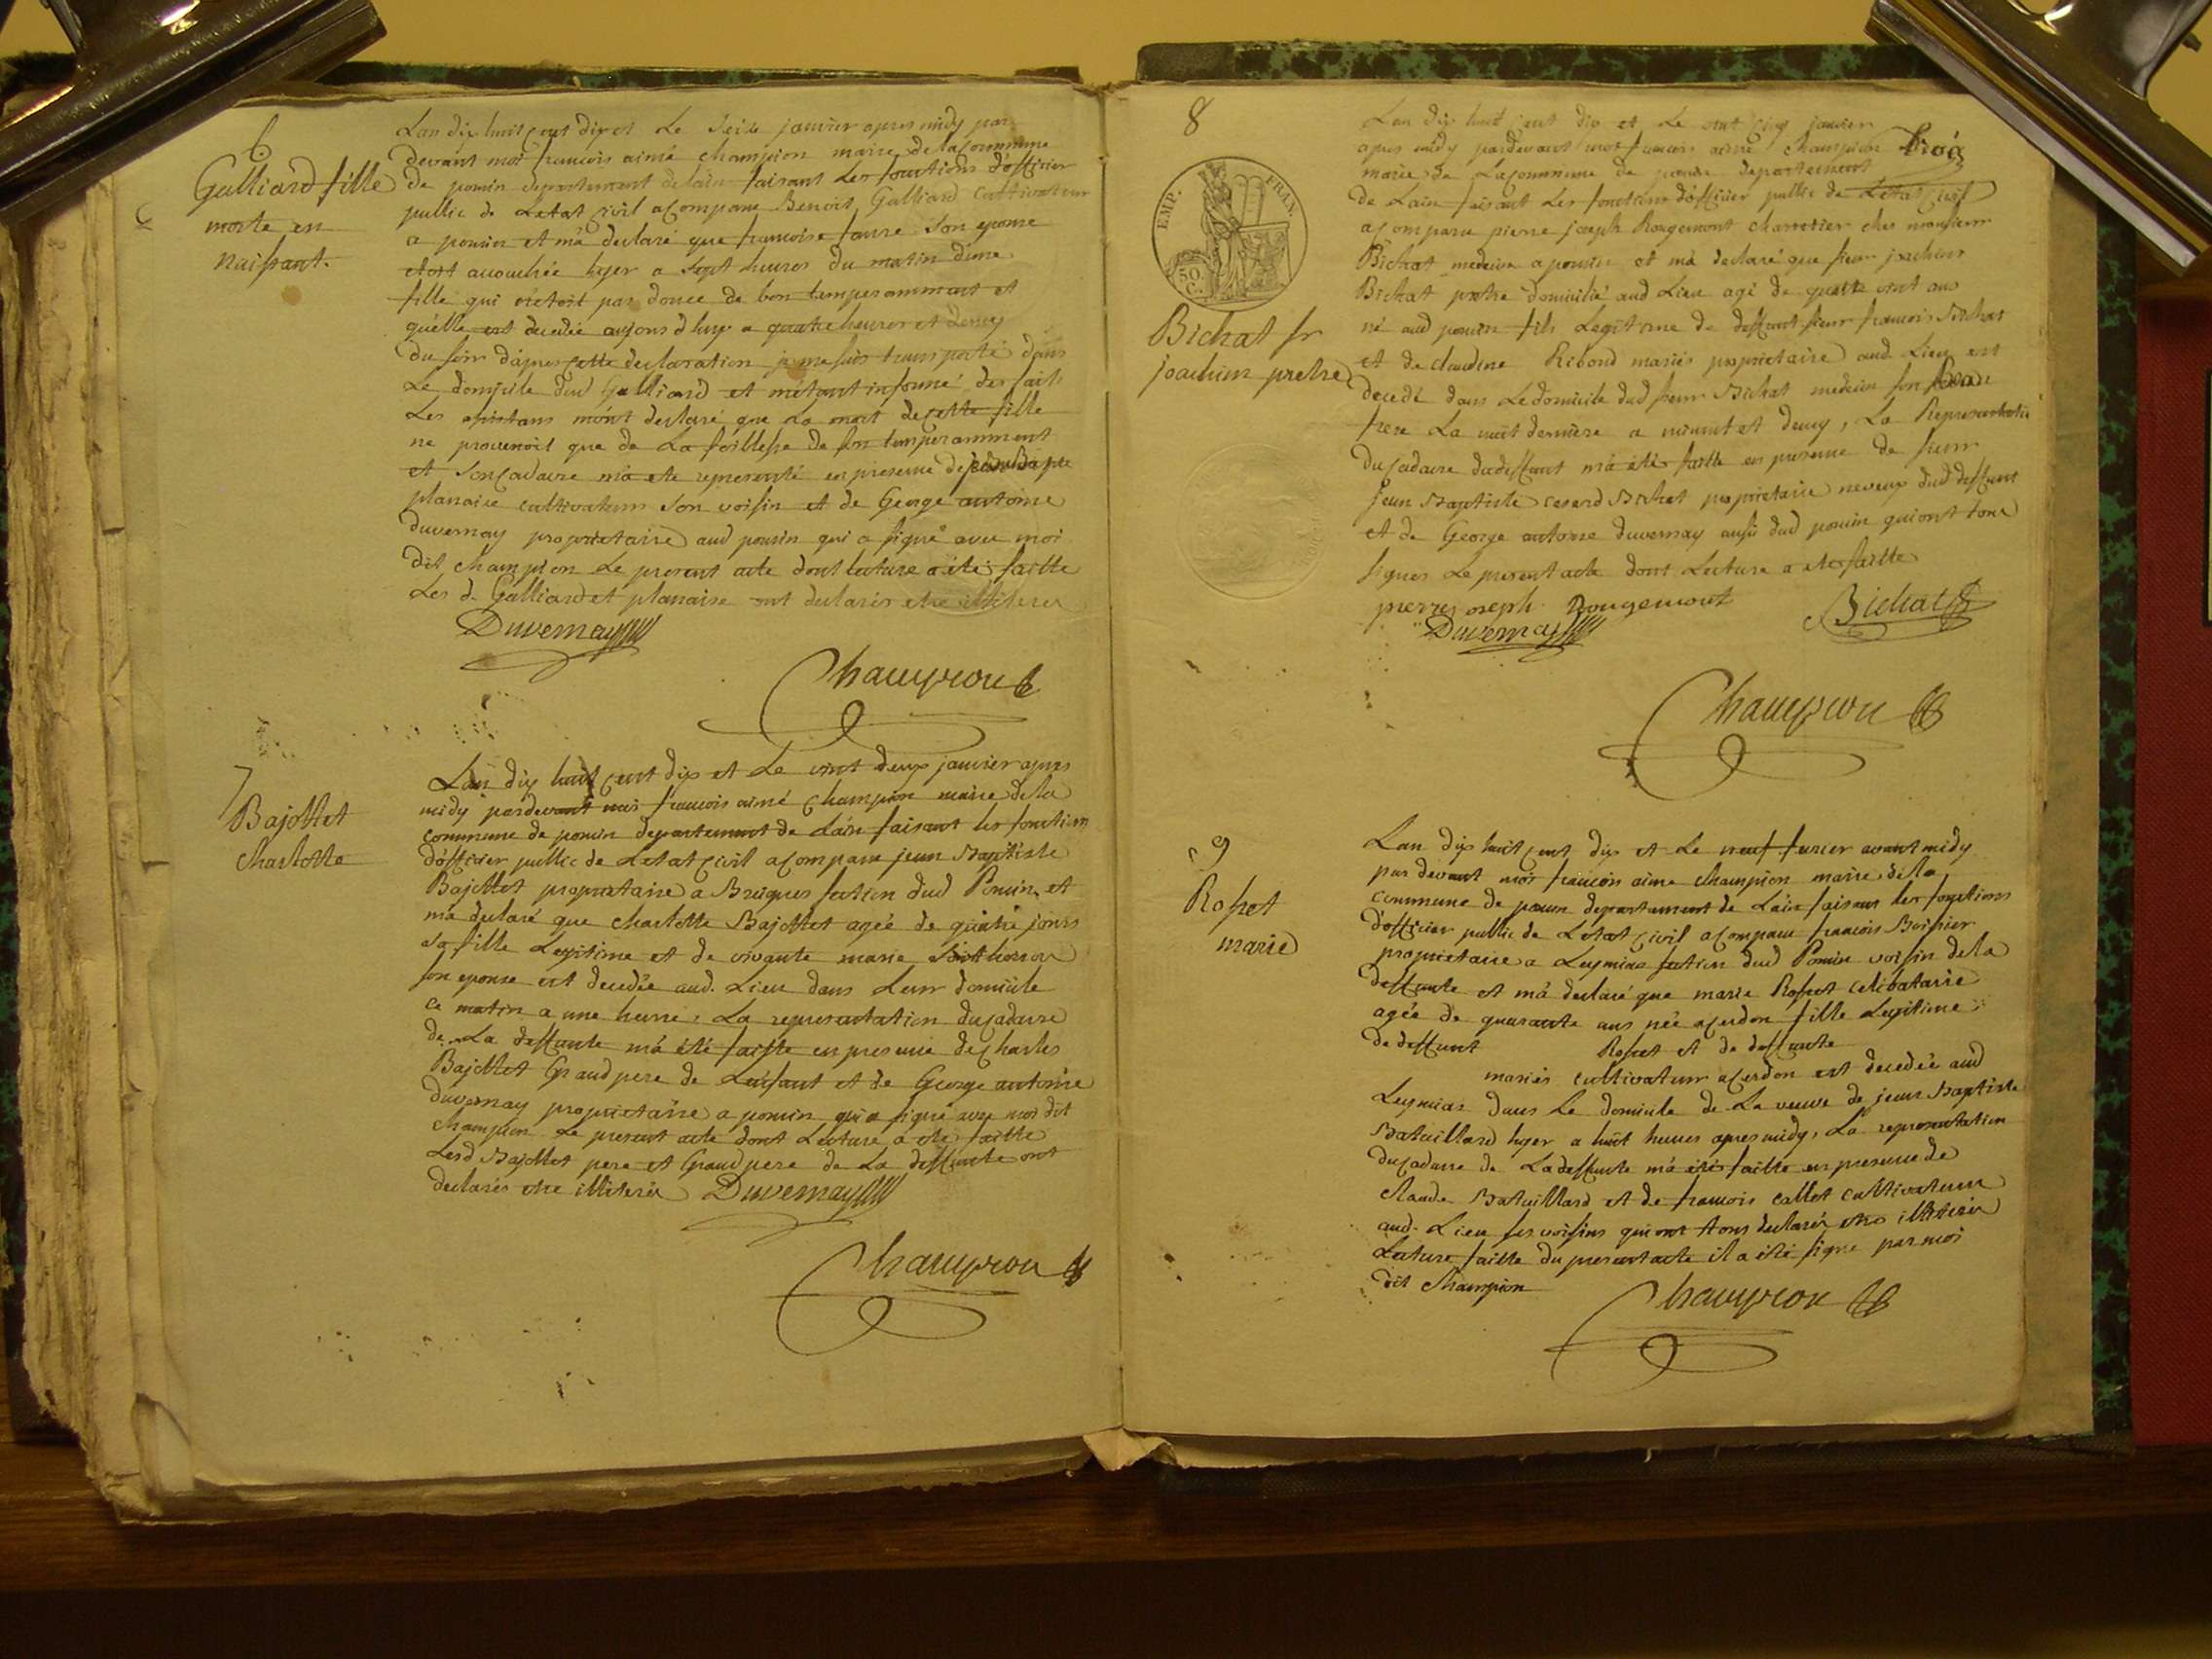 6
Galliard fille
morte en
naissant.
Lan dix huit cent dix et Le Seize janvier apres midy par
devant moi francois aimé champion maire de la Commune
de poncin departement de lain faisant Les fonctions dofficier
public de Letat civil a comparu Benoit Galliard Cultivateur
a poncin et ma declaré que francoise favre Son epouse
etoit accouchée hyer a Sept heures du matin dune
fille qui n'etoit pas douee de bon temperamment et
quelle est decedée aujourdhuy a quatre heures et demy
du soir dapres cette declaration je me suis transporté dans
Le domicile dud Galliard et métant informé des faits
Les assistans mónt declaré que La mort de cette fille
ne provenoit que de La foiblesse de son temperamment
et son cadavre ma ete representé en presence de jean Bapte
planaise cultivateur Son voisin et de George antoine
duvernay proprietaire aud poncin qui a signé avec moi
dit champion Le present acte dont lecture a été faitte
Les d. Galliard et planaise ont declarés etre illiterés
Duvernay
Champion
7
Bajollet
charlotte
Lan dix huit cent dix et Le vint deux janvier apres
midy pardevant moi francois aimé champion maire de la
commune de poncin departement de Lain faisant les fonctions
dofficier public de Letat civil a comparu jean Baptiste
Bajollet proprietaire a Breignes section dud Poncin et
ma declaré que charlotte Bajollet agée de quatre jours
sa fille Legitime et de vivante marie
son epouse est decedée aud. Lieu dans Leur domicile
ce matin a une heure. La representation du cadavre
de La deffunte má été faitte en presence de charles
Bajollet Grand pere de Lenfant et de George antoine
duvernay proprietaire a poncin qui a signé avec moi dit
champion Le present acte dont Lecture a ete faitte
Lesd Bajollet pere et Grand pere de La deffunte ont
declarés etre illiterés Duvernay
Champion
8
EMP. FRAN.
50 C.
Bichat sr
joachim pretre
Lan dix huit cent dix et Le vint cinq janvier
apres midy pardevant moi francois aimé champion
trois
maire de La commune de poncin departement
de Lain faisant Les fonctions dofficier public de Letat civil
a comparu pierre joseph Rougemont charretier ches monsieur
Bichat medecin a poncin et má declaré que sieur joachim
Bichat pretre domicilié aud Lieu agé de quatre vint ans
né aud poncin fils Legitime de deffunt sieur francois Bichat
et de claudine Ribond mariés proprietaire aud. Lieu est
decedé dans Le domicile dud sieur Bichat medecin son
frere La nuit derniere a minuit et demy, La Representation
du cadavre du deffunt má été faitte en presence de sieur
jean Baptiste cesard Bichat proprietaire neveux dud deffunt
et de George antoine duvernay aussi dud poncin qui ont tous
signes Le present acte dont Lecture a ete faitte
pierre joseph Rougemont
Bichat
Duvernay
Champion
9
Rosset
marie
Lan dix huit cent dix et Le neuf fevrier avant midy
par devant moi francois aimé champion maire de la
commune de poncin departement de Lain faisant les fonctions
dofficier public de Letat civil a comparu francois Boissier
proprietaire a Leymiac section dud Poncin voisin de la
deffunte et má declaré que marie Rosset celibataire
agée de quarante ans née a cerdon fille Legitime
de deffunt Rosset et de deffunte
mariés cultivateur a cerdon est decedée aud
Leymiac dans Le domicile de La veuve de jean Baptiste
Bataillard hyer a huit heures apres midy, La representation
du cadavre de La deffunte má été faitte en presence de
claude Bataillard et de francois callet cultivateurs
aud. Lieu ses voisins qui ont tous declarés etre illiterés
Lecture faitte du present acte il a été signe par moi
dit champion
Champion